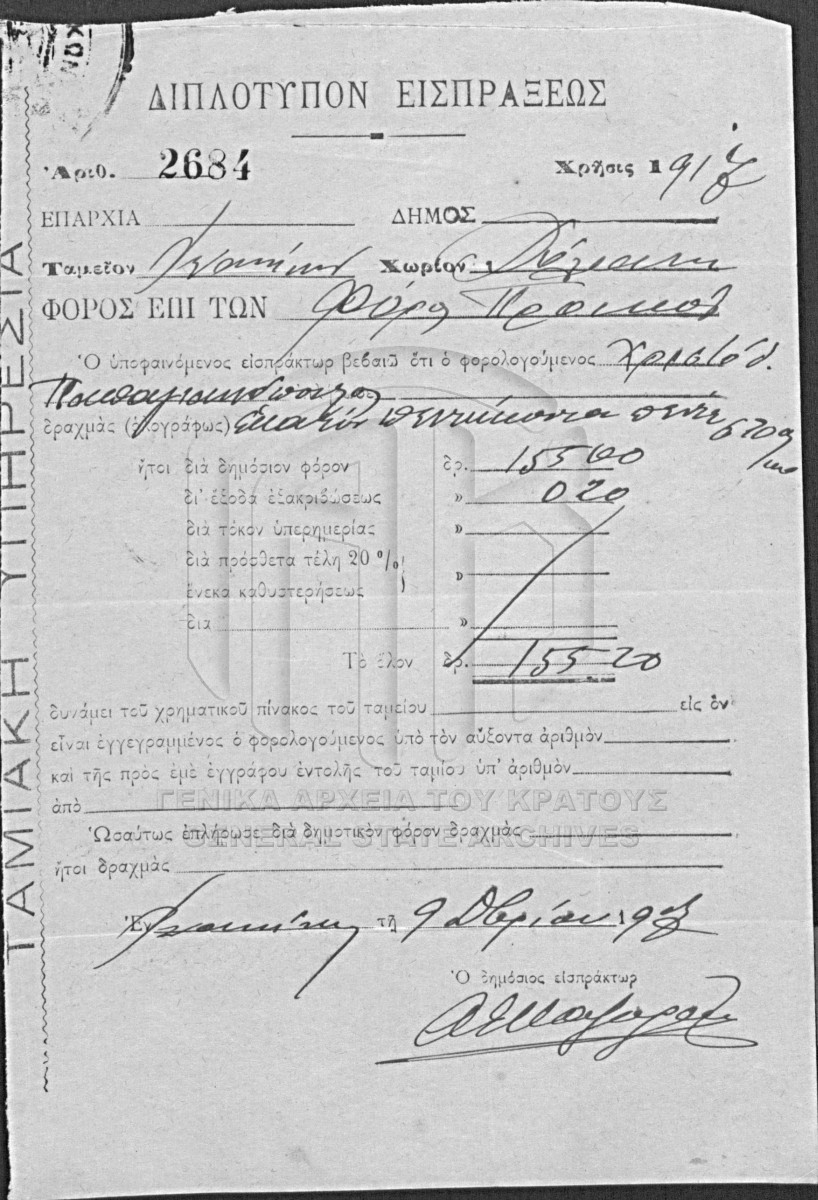 ΚΩΝ
ΔΙΠΛΟΤΥΠΟΝ ΕΙΣΠΡΑΞΕΩΣ
Ἀριθ. 2684 Χρῆσις 191
ΕΠΑΡΧΙΑ ΔΗΜΟΣ
Ταμεῖον Χωρίον
ΦΟΡΟΣ ΕΠΙ ΤΩΝ Φόρος
Ὁ ὑποφαινόμενος εἰσπράκτωρ βεβαιῶ ὅτι ὁ φορολογούμενος
δραχμὰς (ὁλογράφως) Ἑκατὸν πεντήκοντα πέντε
ἤτοι διὰ δημόσιον φόρον δρ. 155 00
δι' ἔξοδα ἐξακριβώσεως » 0 20
διὰ τόκον ὑπερημερίας »
διὰ πρόσθετα τέλη 20 %
ἕνεκα καθυστερήσεως »
δια »
Τὸ ὅλον δρ. 155 20
δυνάμει τοῦ χρηματικοῦ πίνακος τοῦ ταμείου εἰς ὃν
εἶναι ἐγγεγραμμένος ὁ φορολογούμενος ὑπὸ τὸν αὔξοντα ἀριθμὸν
καὶ τῆς πρὸς ἐμὲ ἐγγράφου ἐντολῆς τοῦ ταμίου ὑπ' ἀριθμὸν
ἀπὸ
ΓΕΝΙΚΑ ΑΡΧΕΙΑ ΤΟΥ ΚΡΑΤΟΥΣ
Ὡσαύτως ἐπλήρωσε διὰ δημοτικὸν φόρον δραχμὰς
GENERAL STATE ARCHIVES
ἤτοι δραχμὰς
Ἐν τῇ 9 19
Ὁ δημόσιος εἰσπράκτωρ
ΤΑΜΙΑΚΗ ΥΠΗΡΕΣΙΑ